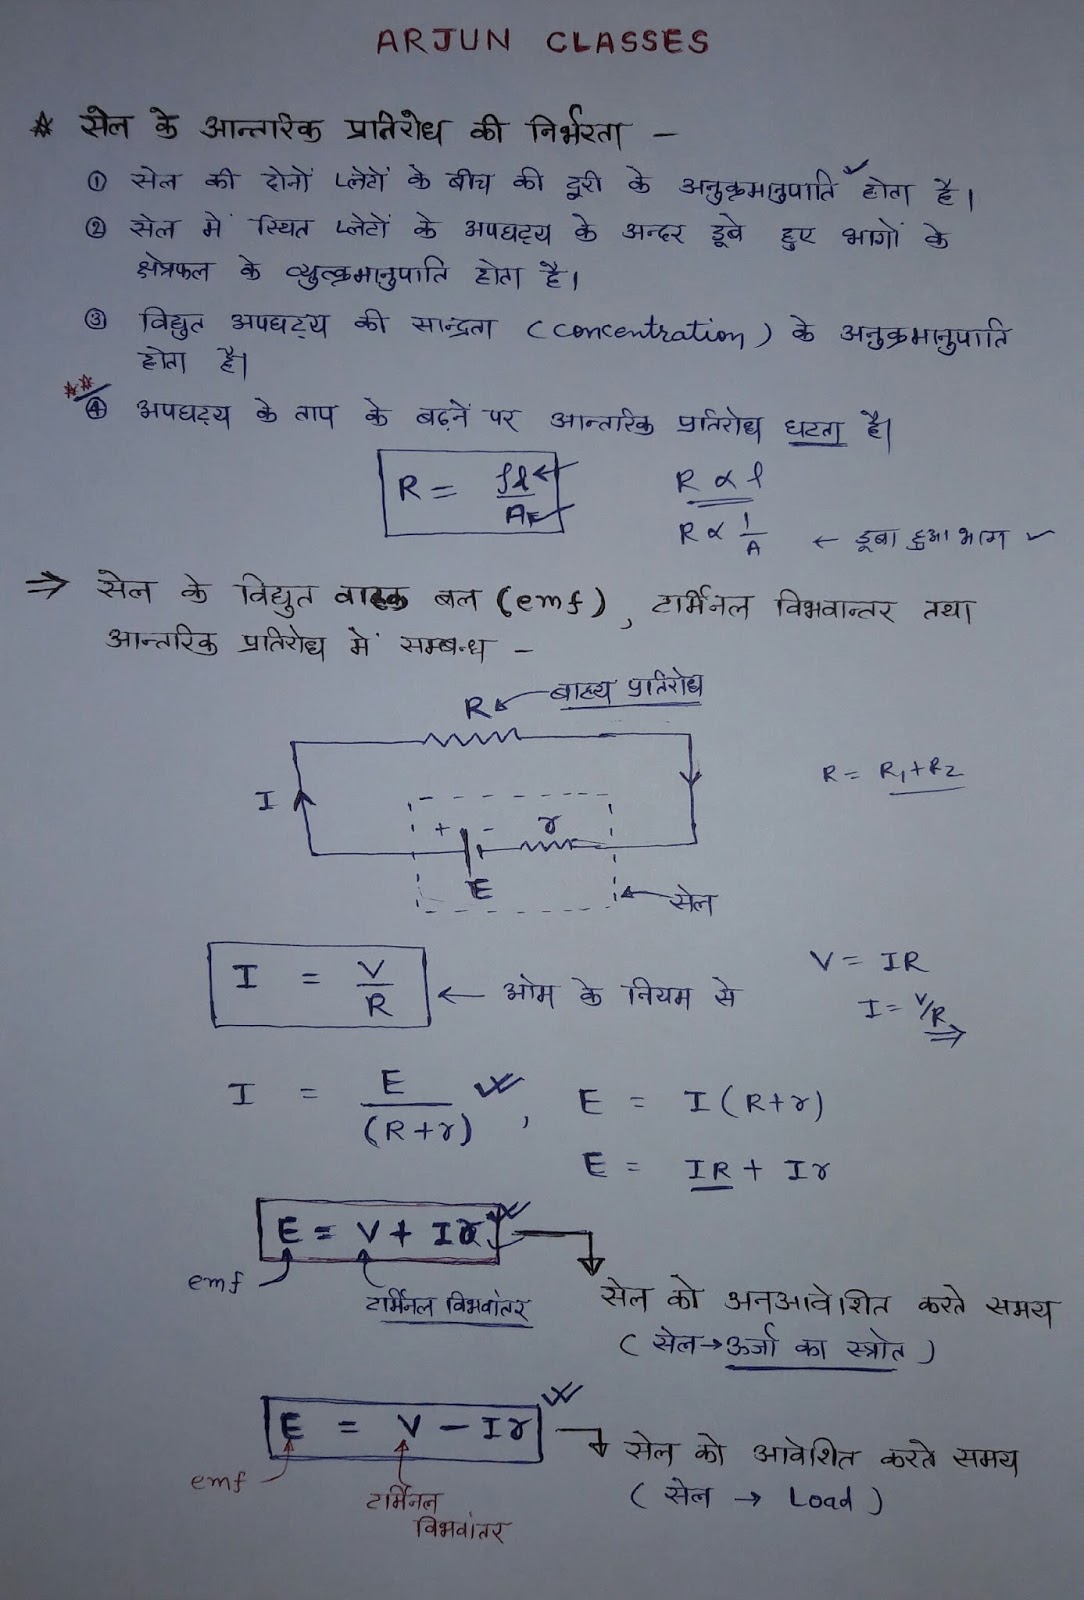 ARJUN CLASSES
* सेल के आन्तरिक प्रतिरोध की निर्भरता -
① सेल की दोनों प्लेटों के बीच की दूरी के अनुक्रमानुपाति होता है।
② सेल में स्थित प्लेटों के अपघट्य के अन्दर डूबे हुए भागों के
क्षेत्रफल के व्युत्क्रमानुपाति होता है।
③ विद्युत अपघट्य की सान्द्रता (concentration) के अनुक्रमानुपाति
होता है।
** ④ अपघट्य के ताप के बढ़नें पर आन्तरिक प्रतिरोध घटता है।
R = ρl/A
R ∝ l
R ∝ 1/A ← डूबा हुआ भाग
⇒ सेल के विद्युत वाहक बल (emf), टार्मिनल विभवान्तर तथा
आन्तरिक प्रतिरोध में सम्बन्ध -
R ← बाह्य प्रतिरोध
R = R₁+R₂
I
+ - r
E
← सेल
I = V/R ← ओम के नियम से
V = IR
I = V/R
I = E/(R+r) , E = I(R+r)
E = IR + Ir
E = V + Ir
emf
टार्मिनल विभवांतर
सेल को अनआवेशित करते समय
(सेल→ऊर्जा का स्त्रोत)
E = V - Ir
सेल को आवेशित करते समय
(सेल → Load)
emf
टार्मिनल
विभवांतर